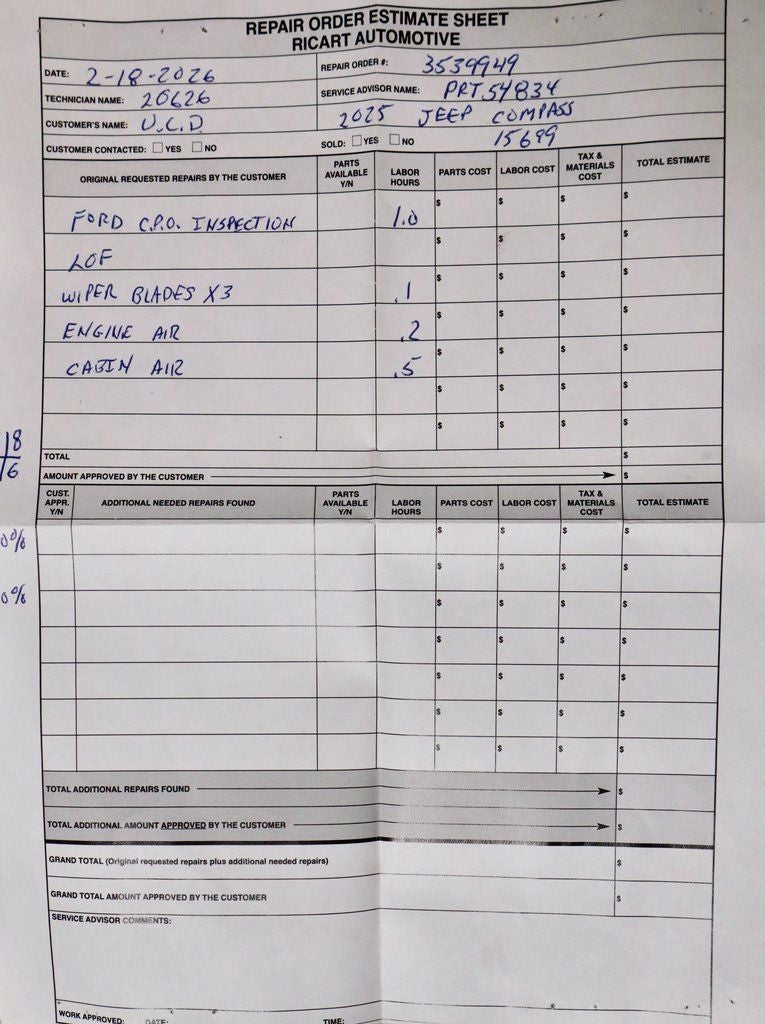 REPAIR ORDER ESTIMATE SHEET
RICART AUTOMOTIVE
DATE: 2-18-2026
REPAIR ORDER #: 3539949
TECHNICIAN NAME: 20626
SERVICE ADVISOR NAME: PRT54834
CUSTOMER'S NAME: U.C.D.
2025 JEEP COMPASS
CUSTOMER CONTACTED: YES NO
SOLD: YES NO
15699
ORIGINAL REQUESTED REPAIRS BY THE CUSTOMER PARTS AVAILABLE Y/N LABOR HOURS PARTS COST LABOR COST TAX & MATERIALS COST TOTAL ESTIMATE
FORD C.P.O. INSPECTION 1.0 $ $ $ $
LOF $ $ $ $
WIPER BLADES X3 .1 $ $ $ $
ENGINE AIR .2 $ $ $ $
CABIN AIR .5 $ $ $ $
$ $ $ $
$ $ $ $
18
6
TOTAL $
AMOUNT APPROVED BY THE CUSTOMER $
CUST. APPR. Y/N ADDITIONAL NEEDED REPAIRS FOUND PARTS AVAILABLE Y/N LABOR HOURS PARTS COST LABOR COST TAX & MATERIALS COST TOTAL ESTIMATE
0% $ $ $ $
$ $ $ $
0% $ $ $ $
$ $ $ $
$ $ $ $
$ $ $ $
$ $ $ $
TOTAL ADDITIONAL REPAIRS FOUND $
TOTAL ADDITIONAL AMOUNT APPROVED BY THE CUSTOMER $
GRAND TOTAL (Original requested repairs plus additional needed repairs) $
GRAND TOTAL AMOUNT APPROVED BY THE CUSTOMER $
SERVICE ADVISOR COMMENTS:
WORK APPROVED: DATE: TIME: